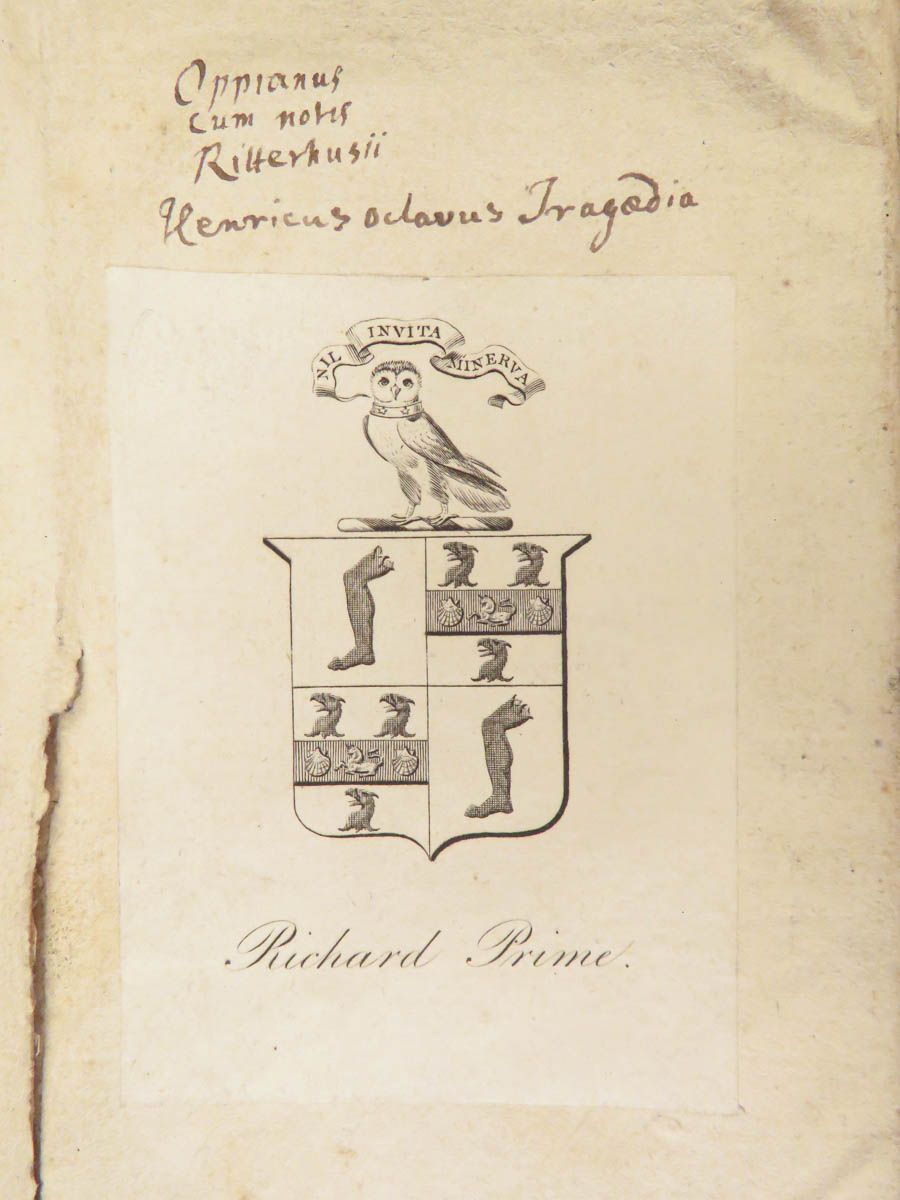 Oppianus
cum notis
Ritterhusii
Henricus octavus Tragœdia
NIL INVITA MINERVA
Richard Prime.